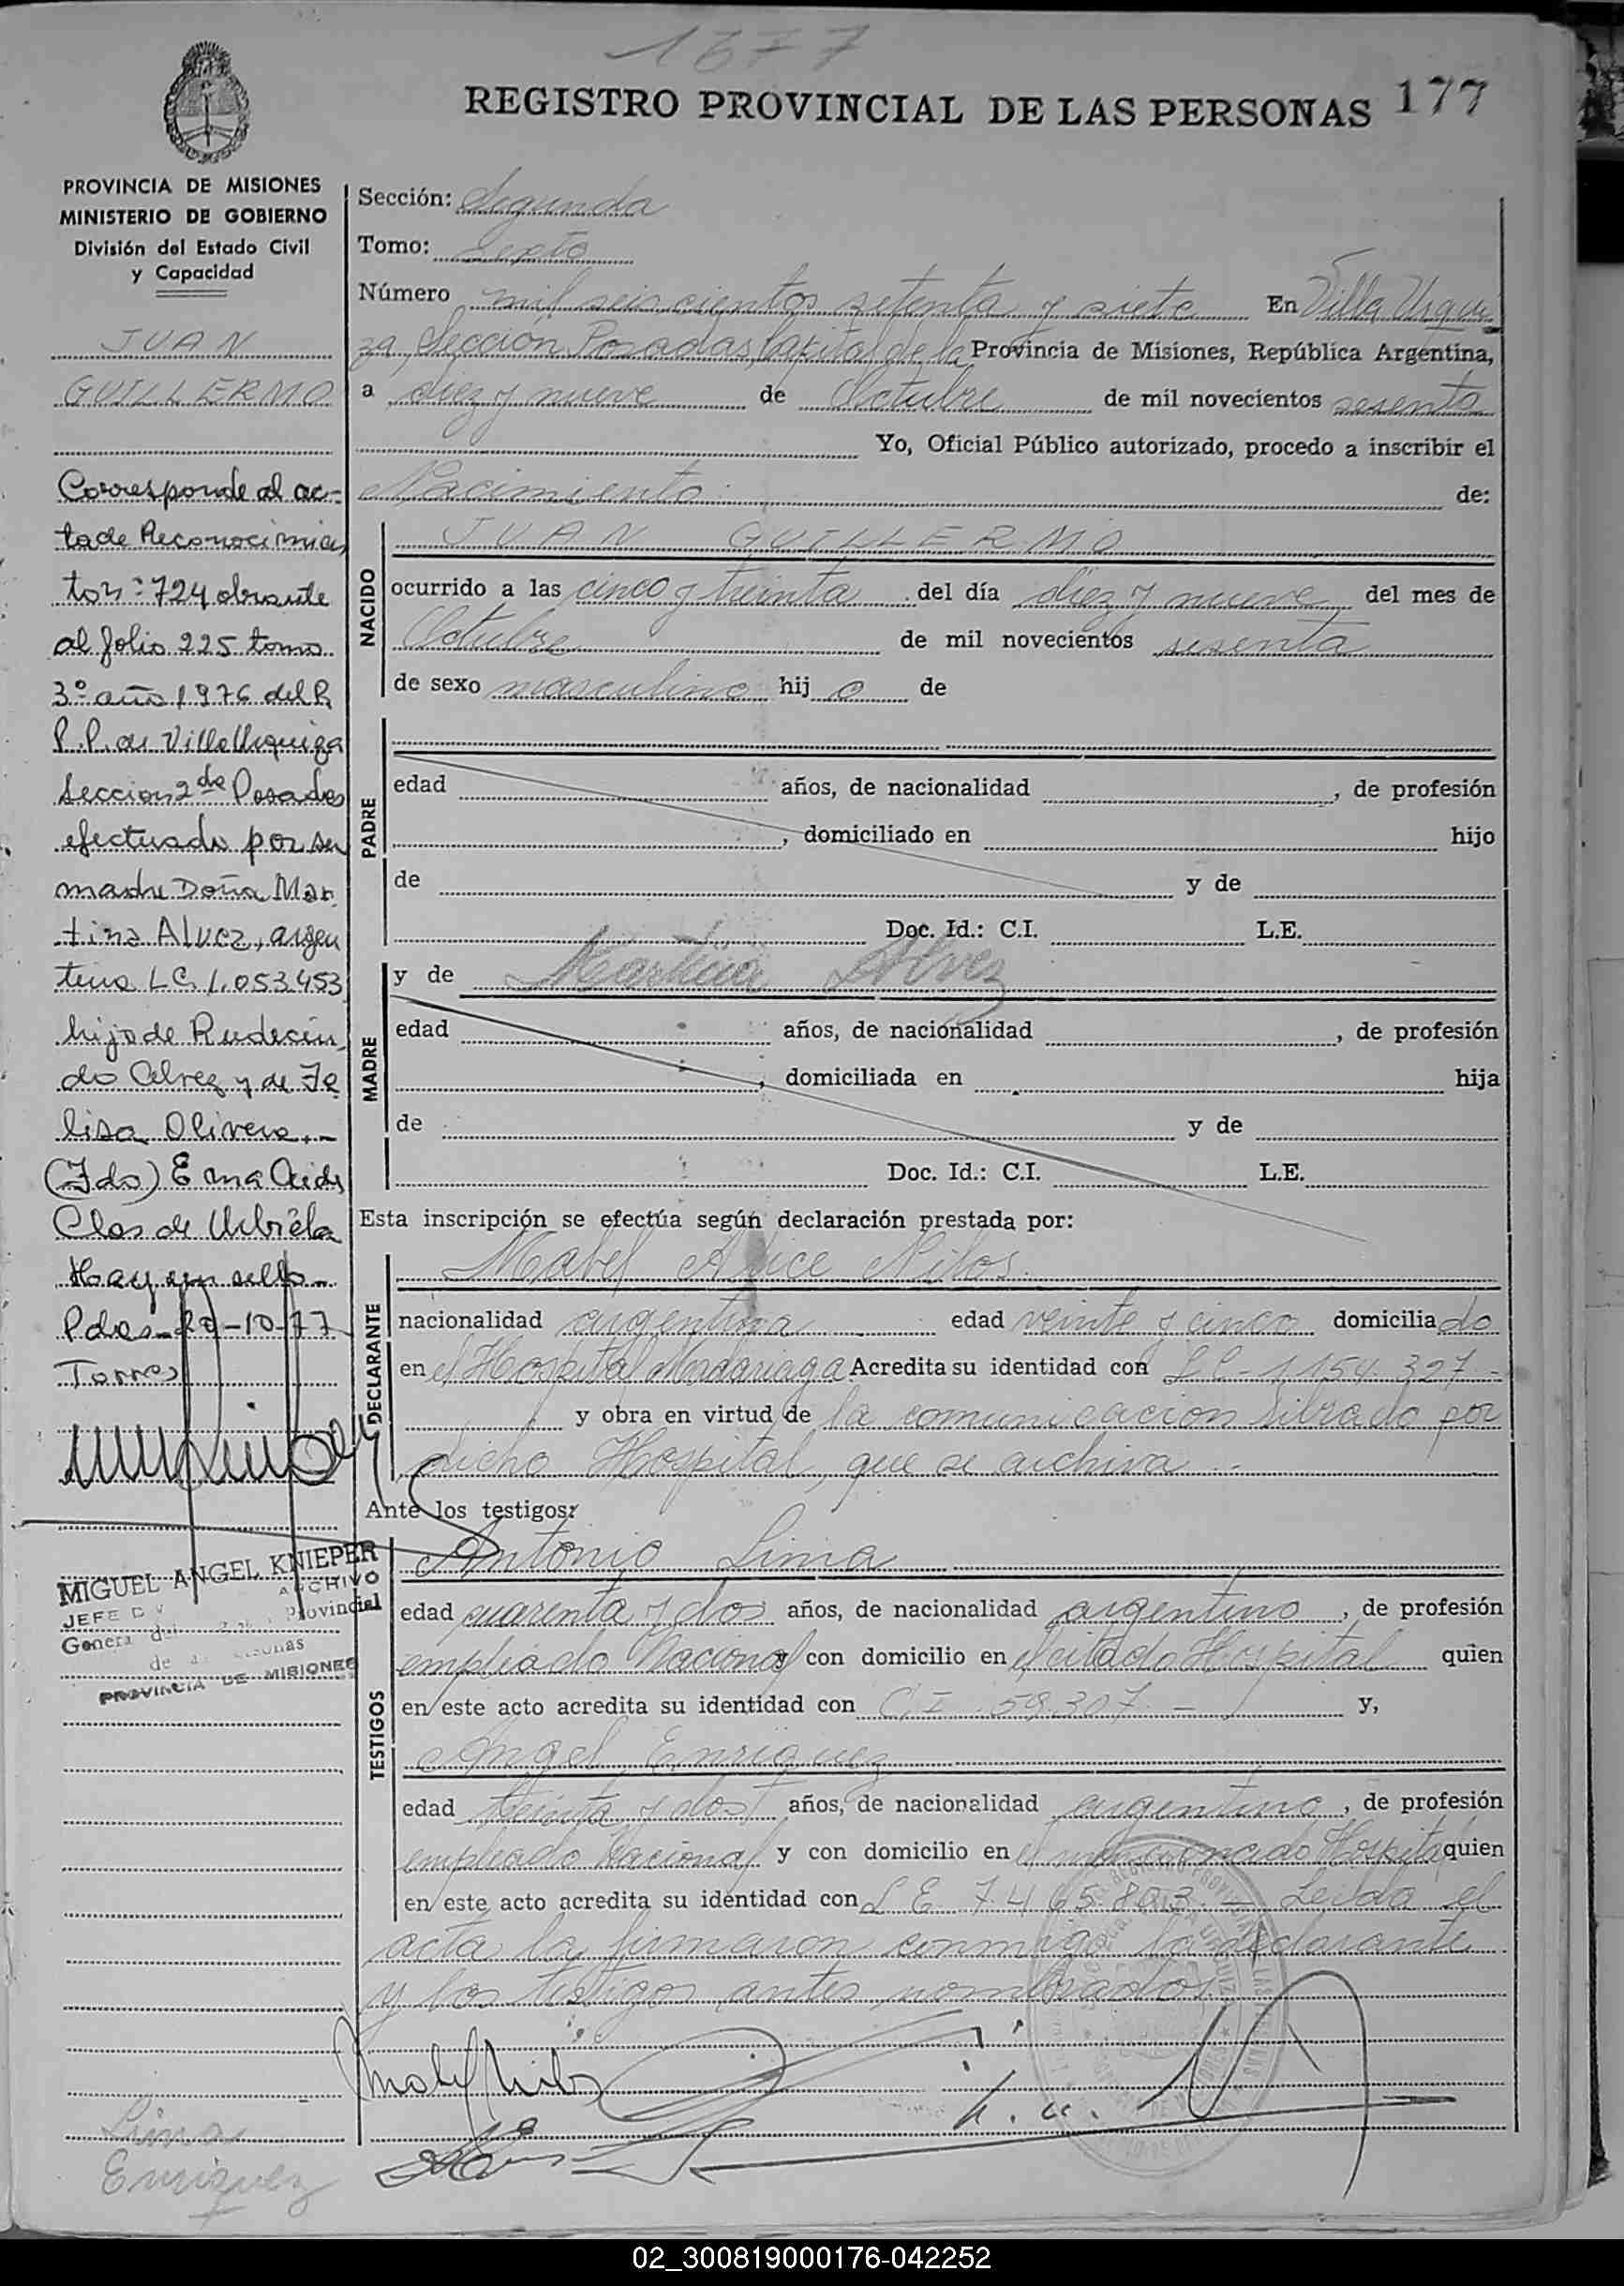 1677
REGISTRO PROVINCIAL DE LAS PERSONAS 177
PROVINCIA DE MISIONES
MINISTERIO DE GOBIERNO
División del Estado Civil
y Capacidad
JUAN
GUILLERMO
Corresponde al ac-
ta de Reconocimien
to nº 724 obrante
al folio 225 tomo
3º año 1976 del R.
P.P. de Villa Urquiza
Seccion 2da Posadas
efectuado por su
madre Doña Mar
tina Alvez, argen
tina LC 1.053.453
hijo de Rudecin
do Alvez y de Fe
lisa Olivera.-
(Fdo) E
Clos de Urbieta
Hay un sello-
Pdas-20-10-77
Torres
MIGUEL ANGEL KNIEPER
JEFE ARCHIVO
General del Provincial
de las Personas
PROVINCIA DE MISIONES
Lima
Enriquez
Sección: Segunda
Tomo: Sexto
Número mil seiscientos setenta y siete En Villa Urqui
za, Sección Posadas, Capital de la Provincia de Misiones, República Argentina,
a diez y nueve de Octubre de mil novecientos sesenta
Yo, Oficial Público autorizado, procedo a inscribir el
Nacimiento de:
NACIDO
JUAN GUILLERMO
ocurrido a las cinco y treinta del día diez y nueve del mes de
Octubre de mil novecientos sesenta
de sexo masculino hij o de
PADRE
edad años, de nacionalidad , de profesión
, domiciliado en hijo
de y de
Doc. Id.: C.I. L.E.
MADRE
y de Martina Alvez
edad años, de nacionalidad , de profesión
, domiciliada en hija
de y de
Doc. Id.: C.I. L.E.
Esta inscripción se efectúa según declaración prestada por:
DECLARANTE
Mabel Alice Nilos
nacionalidad argentina edad veinte y cinco domicilia do
en el Hospital Madariaga Acredita su identidad con LC - 1.154.327 -
y obra en virtud de la comunicacion librado por
dicho Hospital, que se archiva -
Ante los testigos:
TESTIGOS
Antonio Lima
edad cuarenta y dos años, de nacionalidad argentino, de profesión
empleado Nacional y con domicilio en el citado Hospital quien
en este acto acredita su identidad con C.I. 59.307 - y,
Angel Enriquez
edad treinta y dos años, de nacionalidad argentino, de profesión
empleado Nacional y con domicilio en el mencionado Hospital quien
en este acto acredita su identidad con L E 7.465.803 - Leida el
acta la firmaron conmigo la declarante
y los testigos antes nombrados.
02_300819000176-042252